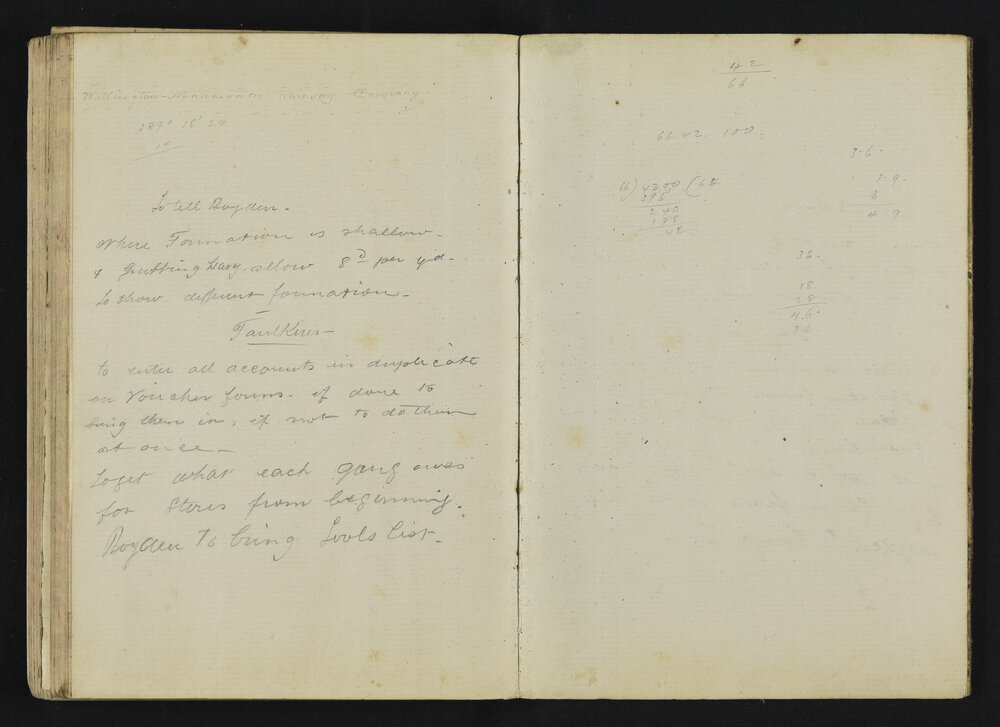 Wellington-Manawatu Railway Company.
289° 18' 20
To tell Boyden.
Where Formation is shallow
& Gutting heavy allow 8d per yd.
To show different formation.
Faulkner
to enter all accounts in duplicate
on Voucher forms. if done to
bring them in, if not to do them
at once
To get what each gang owes
for Stores from beginning.
Boyden to bring Tools List.
42
66
66.42. 100:
3.6.
66) 4200 (6
396
240
198
42
1.9.
3
4.9
36.
18
28
4.6
36